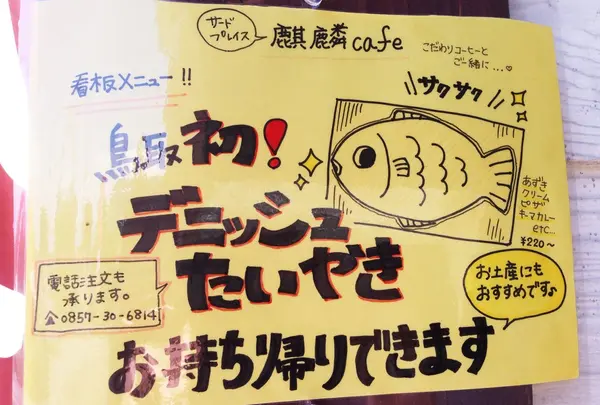 サードプレイス
麒麟cafe
こだわりコーヒーと
ご一緒に...♡
看板メニュー!!
サクサク
鳥取初!
デニッシュ
たいやき
あずき
クリーム
ピザ
キーマカレー
etc...
¥220~
電話注文も
承ります。
☎0857-30-6814
お土産にも
おすすめです♪
お持ち帰りできます